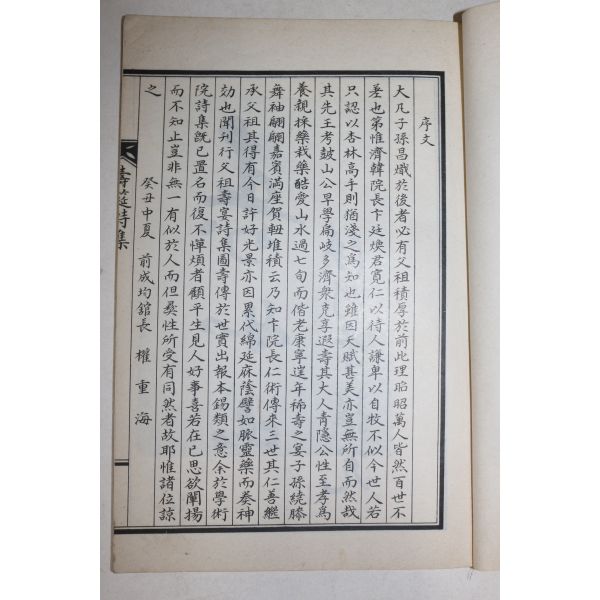 序文
大凡子孫昌熾於後者必有父祖積厚於前此理昭昭萬人皆然百世不
差也第惟濟韓院長卞廷煥君寬仁以待人謙卑以自牧不似今世人若
只認以杏林高手則猶淺之爲知也雖因天賦甚美亦豈無所自而然哉
其先王考鼓山公早學扁岐多濟衆克享遐壽其大人青隱公性至孝爲
養親採藥栽藥酷愛山水過七旬而偕老康寧逞年稀壽之宴子孫繞膝
舞袖翩翩嘉賓滿座賀軸堆積云乃知卞院長仁術傳來三世其仁善繼
承父祖其得有今日許好光景亦因累代綿延庥蔭譬如脈靈藥而奏神
効也聞刊行父祖壽宴詩集圖壽傳於世實出報本錫類之意余於學術
院詩集旣已置名而復不憚煩者顧平生見人好事喜若在已思欲闡揚
而不知止豈非無一有似於人而但彛性所受有同然者故耶惟諸位諒
之
癸丑中夏 前成均館長 權重海
壽筵詩集